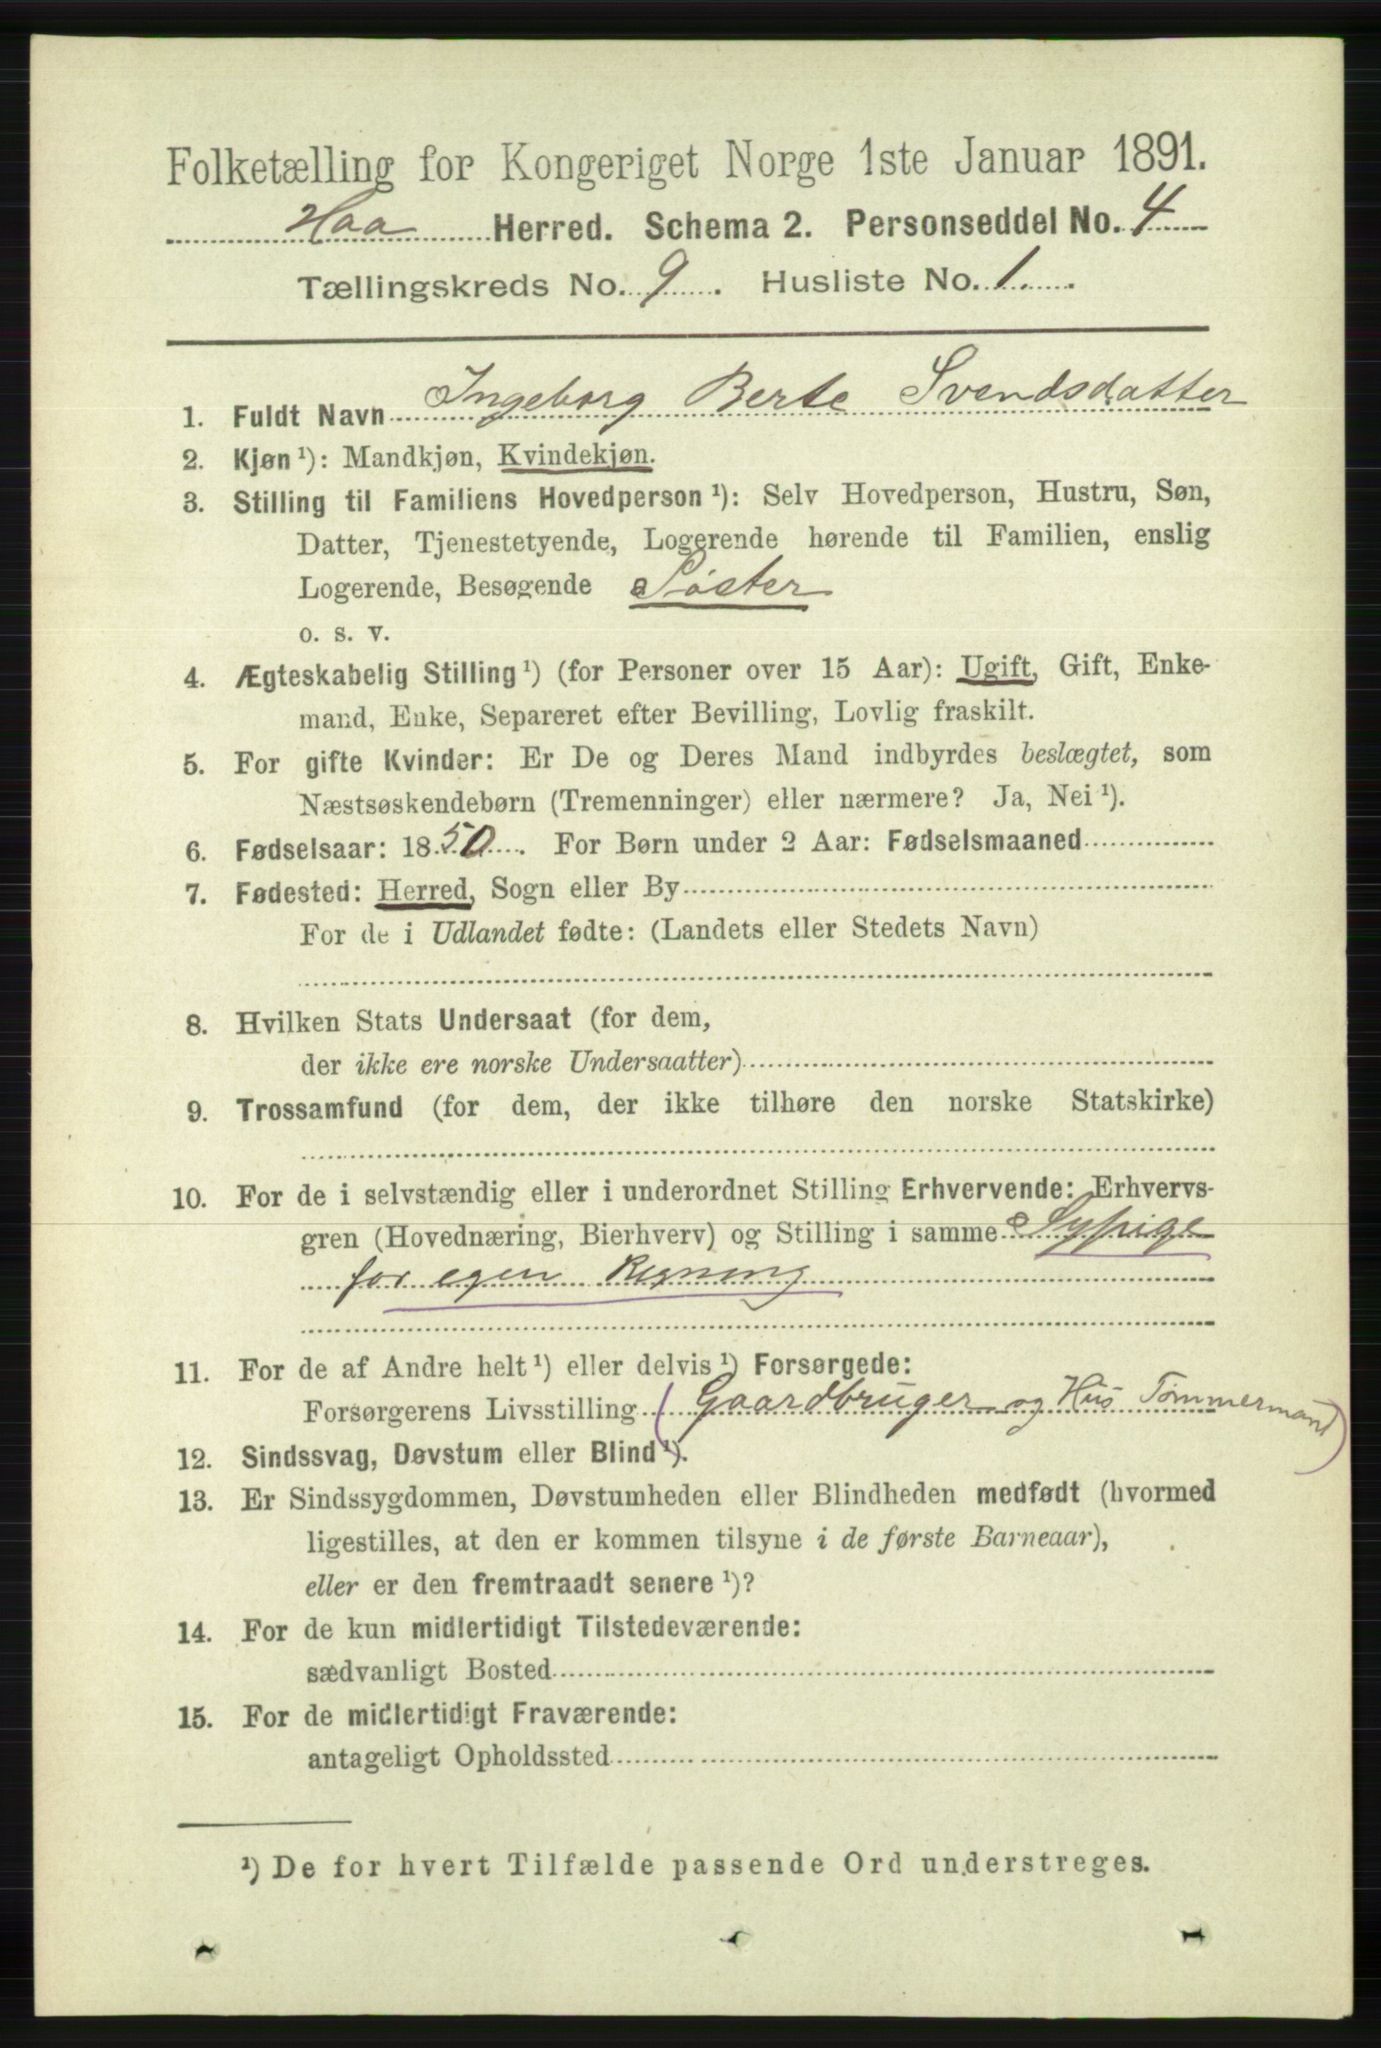 Folketælling for Kongeriget Norge 1ste Januar 1891.
Haa Herred. Schema 2. Personseddel No. 4
Tællingskreds No. 9. Husliste No. 1.
1. Fuldt Navn Ingeborg Berte Svendsdatter
2. Kjøn ¹): Mandkjøn, Kvindekjøn.
3. Stilling til Familiens Hovedperson ¹): Selv Hovedperson, Hustru, Søn,
Datter, Tjenestetyende, Logerende hørende til Familien, enslig
Logerende, Besøgende Søster
o. s. v.
4. Ægteskabelig Stilling ¹) (for Personer over 15 Aar): Ugift, Gift, Enke-
mand, Enke, Separeret efter Bevilling, Lovlig fraskilt.
5. For gifte Kvinder: Er De og Deres Mand indbyrdes beslægtet, som
Næstsøskendebørn (Tremenninger) eller nærmere? Ja, Nei ¹).
6. Fødselsaar: 1850. For Børn under 2 Aar: Fødselsmaaned
7. Fødested: Herred, Sogn eller By
For de i Udlandet fødte: (Landets eller Stedets Navn)
8. Hvilken Stats Undersaat (for dem,
der ikke ere norske Undersaatter)
9. Trossamfund (for dem, der ikke tilhøre den norske Statskirke)
10. For de i selvstændig eller i underordnet Stilling Erhvervende: Erhvervs-
gren (Hovednæring, Bierhverv) og Stilling i samme Sypige
for egen Regning
11. For de af Andre helt ¹) eller delvis ¹) Forsørgede:
Forsørgerens Livsstilling (Gaardbruger og Hus Tømmermand)
12. Sindssvag, Døvstum eller Blind ¹).
13. Er Sindssygdommen, Døvstumheden eller Blindheden medfødt (hvormed
ligestilles, at den er kommen tilsyne i de første Barneaar),
eller er den fremtraadt senere ¹)?
14. For de kun midlertidigt Tilstedeværende:
sædvanligt Bosted
15. For de midlertidigt Fraværende:
antageligt Opholdssted
¹) De for hvert Tilfælde passende Ord understreges.